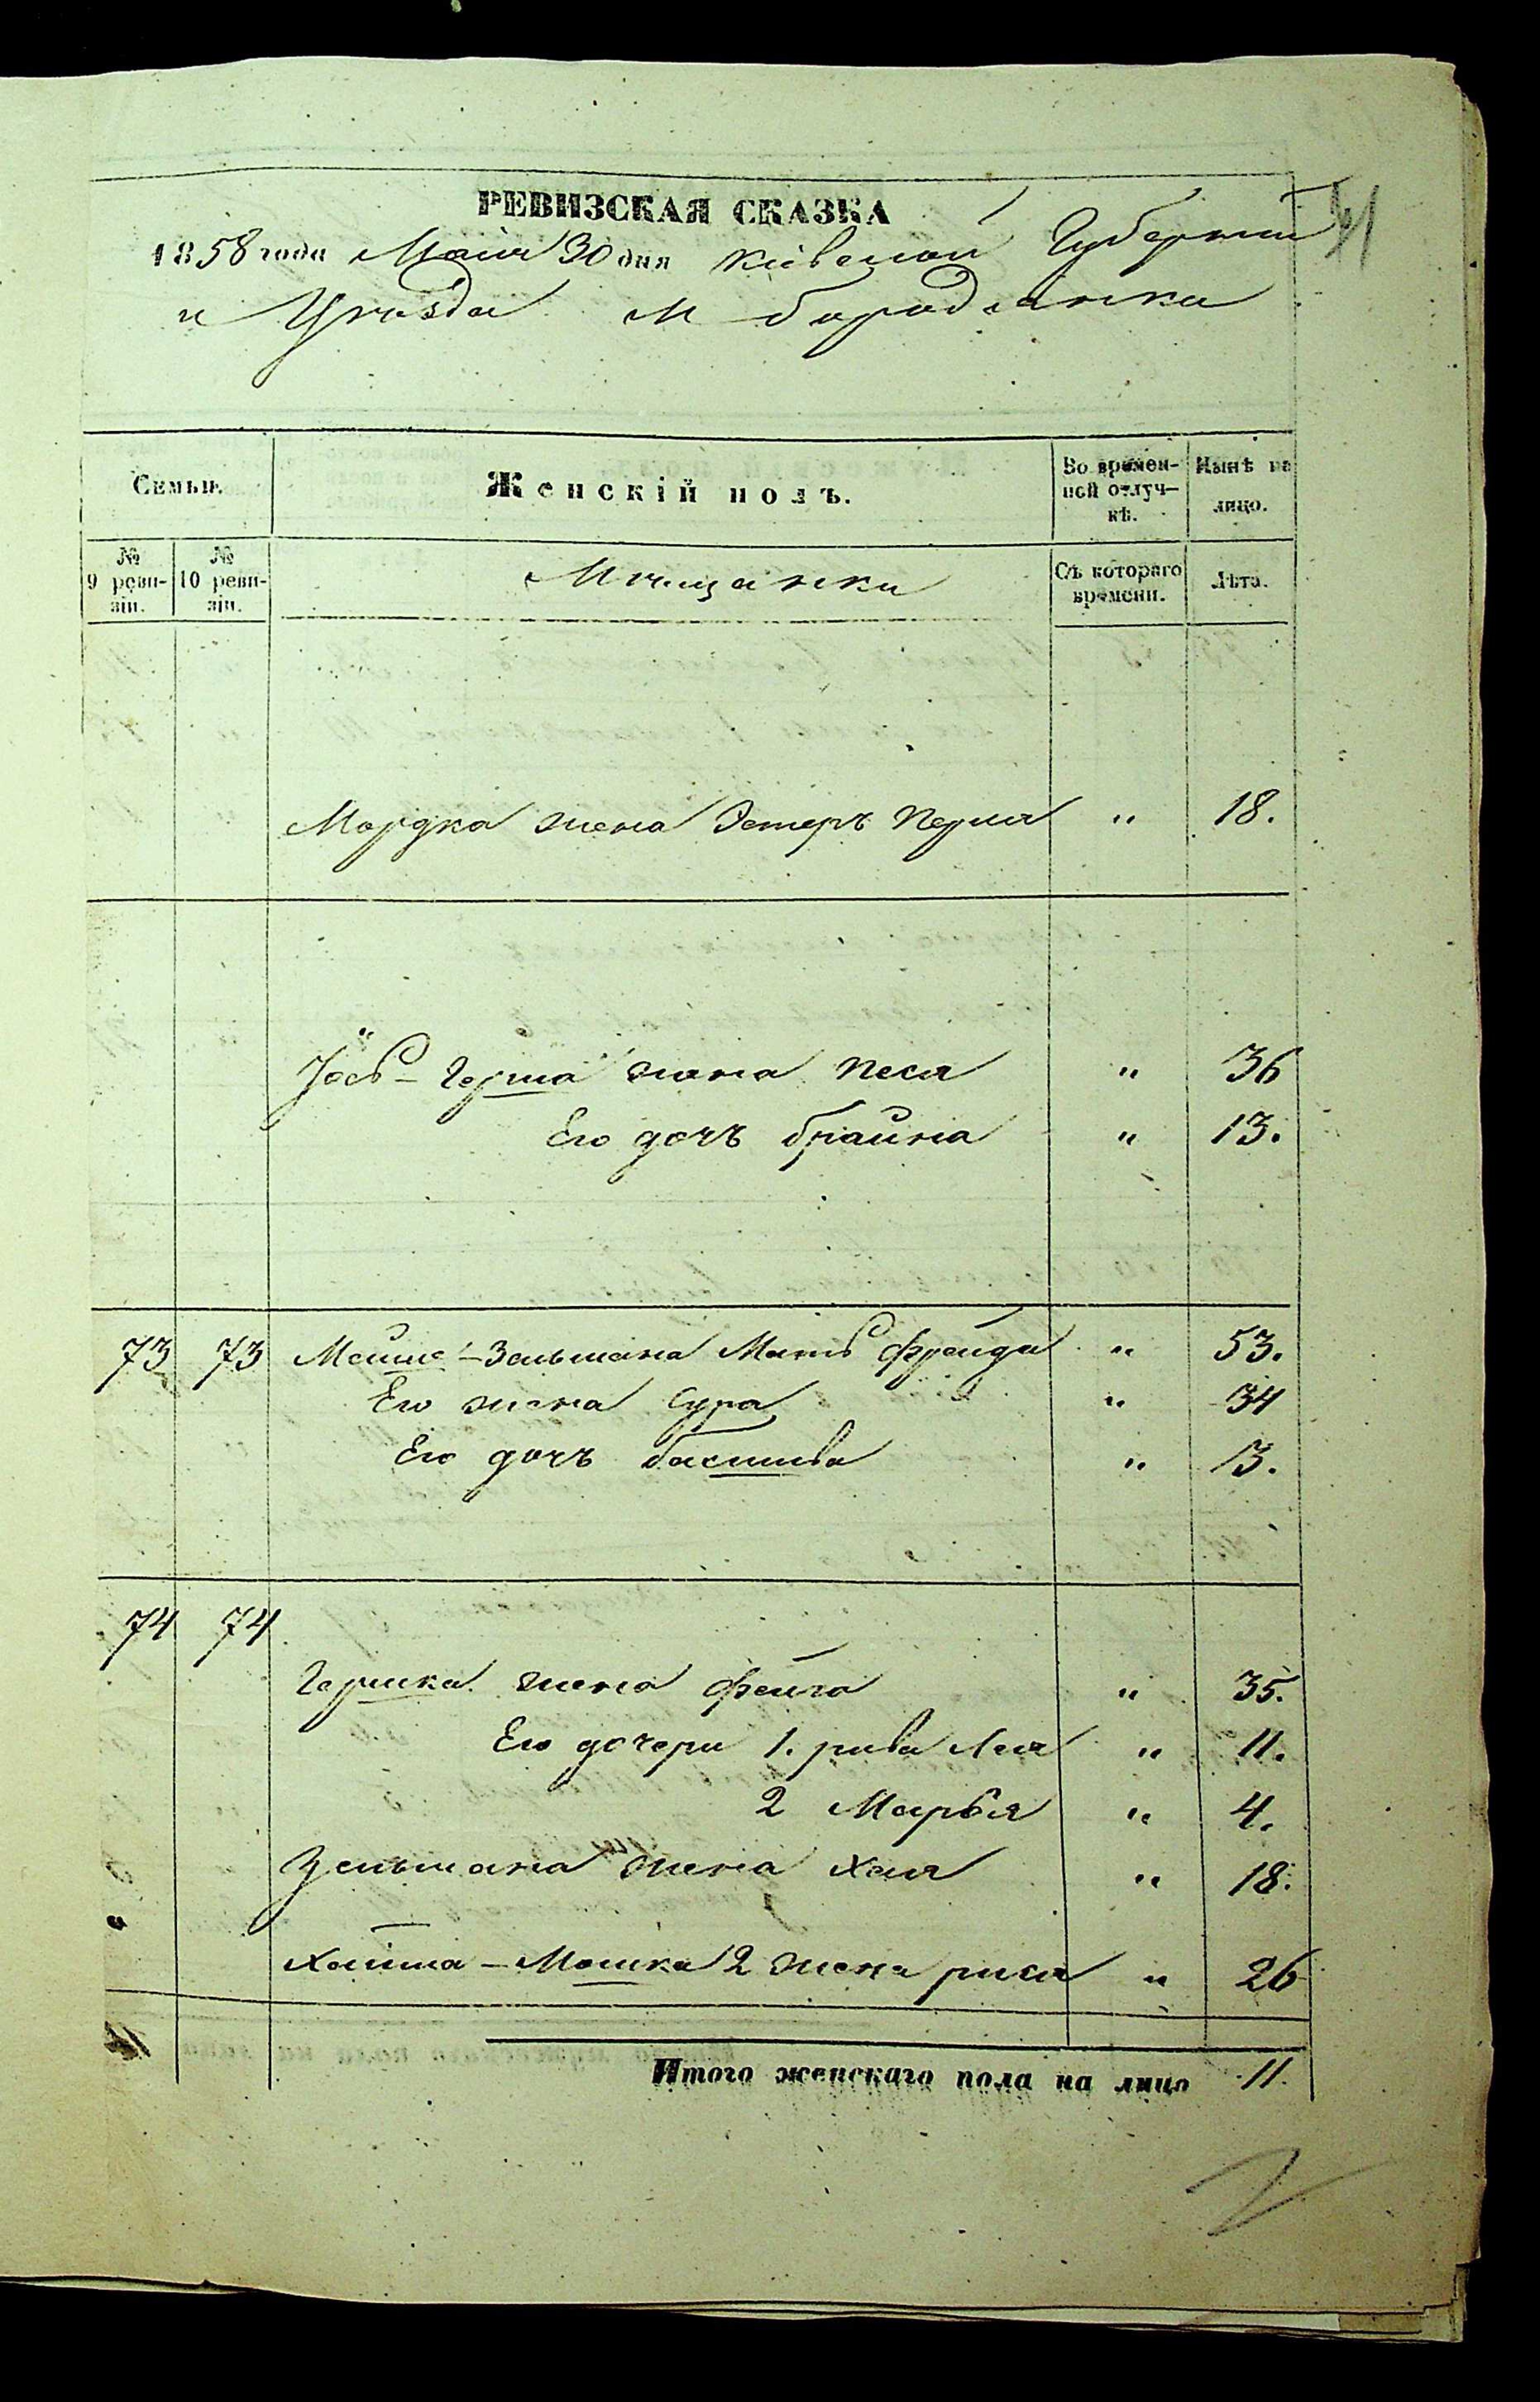 41
РЕВИЗСКАЯ СКАЗКА
1858 года Маія 30 дня Кіевской Губерніи
и Уѣзда М Бородянки
Семьи. Женскій полъ. Во времен-ной отлуч-кѣ. Нынѣ на лицо.
№ 9 реви-зіи. № 10 реви-зіи. Мѣщанки Съ котораго времени. Лѣта.
Мордка жена Эстеръ Перля " 18.
Іось-Герша жена Песя " 36
Его дочь Брайна " 13.
73 73 Мойше-Зельмана Мать Фрейда " 53.
Его жена Сура " 34
Его дочь Басшива " 13.
74 74
Гершка жена Фейга " 35.
Его дочери 1. Рива Лея " 11.
2 Марья " 4.
Зельмана жена Хая " 18.
Хаима-Мошка 2 жена Рися " 26
Итого женскаго пола на лицо 11.